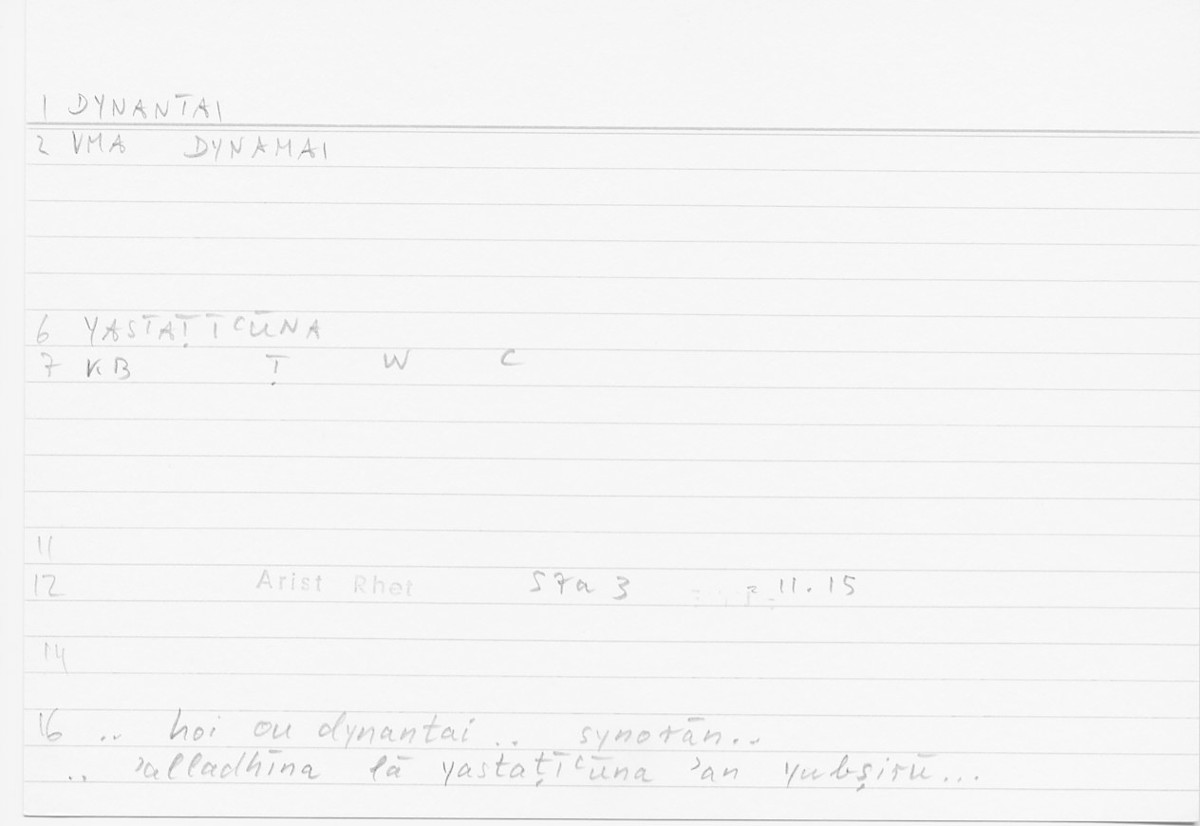 1 DYNANTAI
2 VMA DYNAMAI
6 YASTAṬĪʿŪNA
7 KB Ṭ W ʿ
11
12 Arist Rhet 57a 3 11.15
14
16 .. hoi ou dynantai .. synorān..
.. ʾalladhīna lā yastaṭīʿūna ʾan yubṣirū...